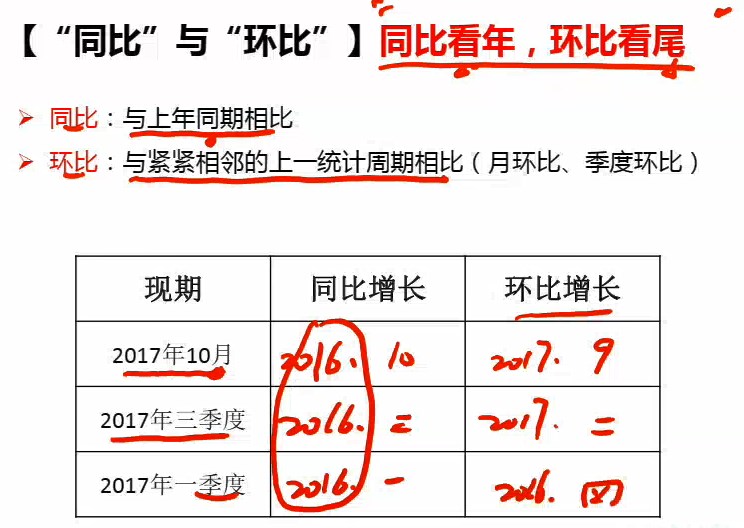 【“同比”与“环比”】同比看年，环比看尾
➢ 同比：与上年同期相比
➢ 环比：与紧紧相邻的上一统计周期相比（月环比、季度环比）
现期 同比增长 环比增长
2017年10月 2016. 10 2017. 9
2017年三季度 2016. 三 2017. 二
2017年一季度 2016. 一 2016. 四